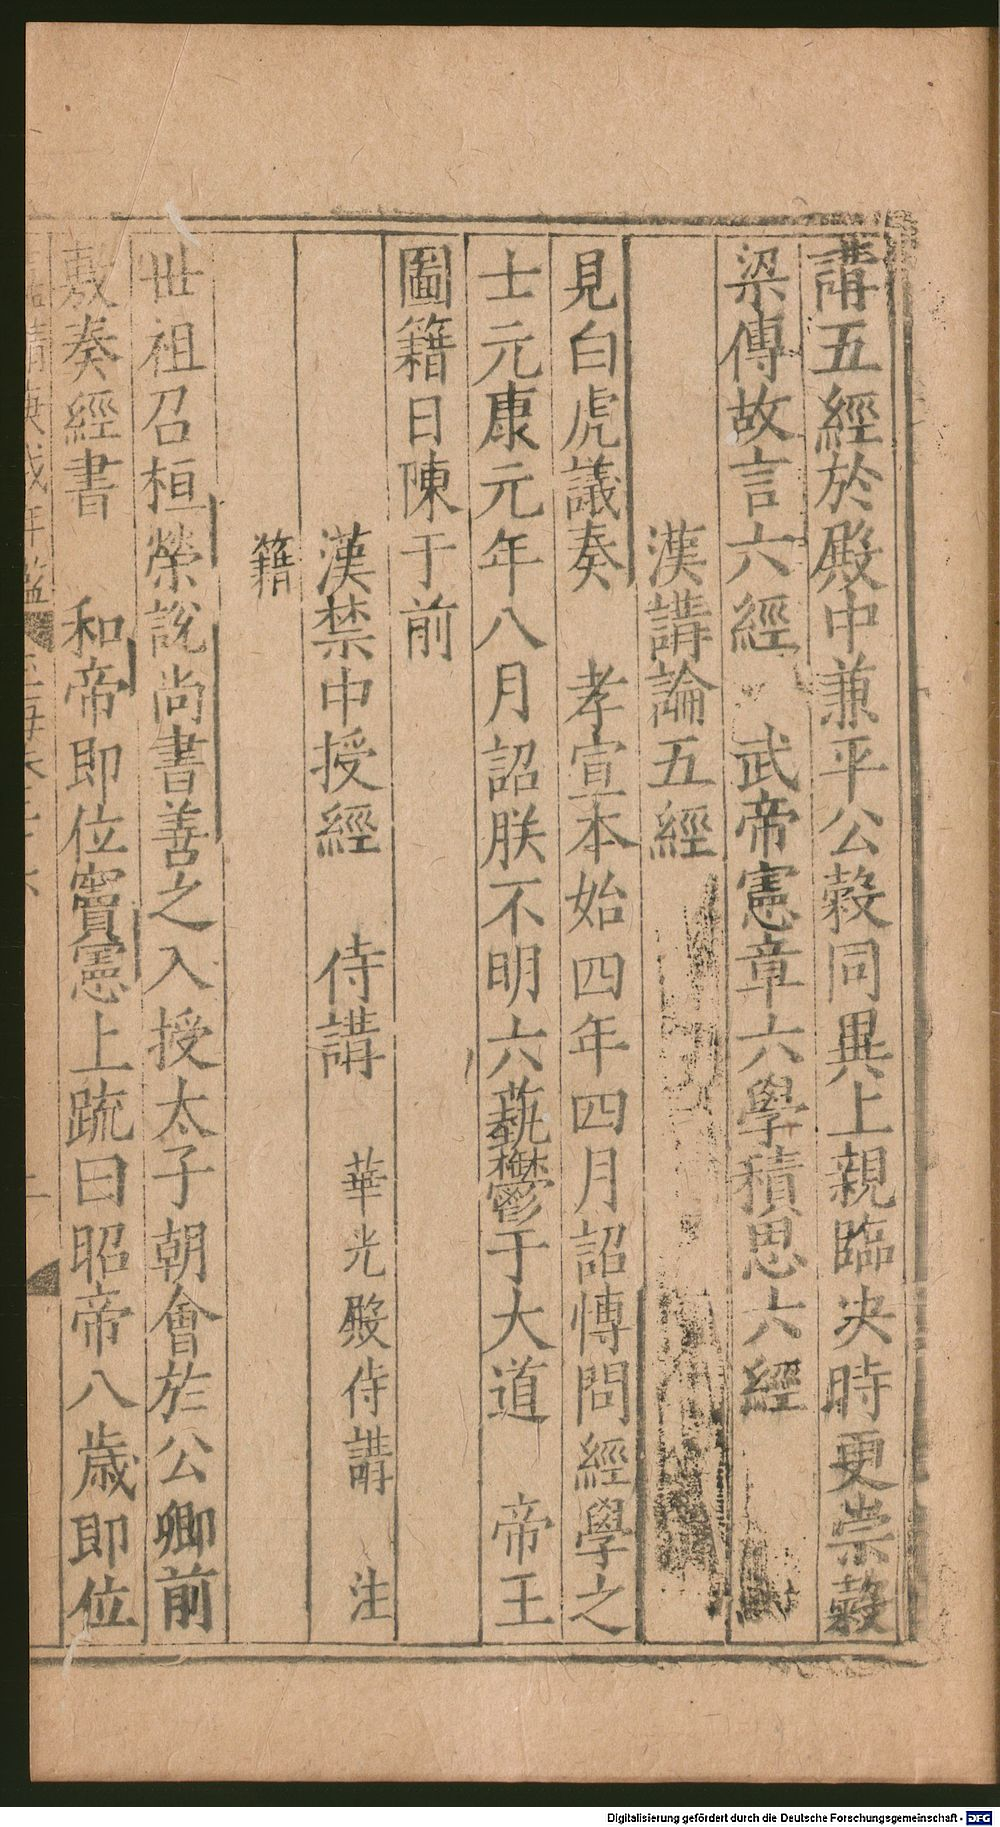 講五經於殿中兼平公穀同異上親臨决時更崇穀
梁傳故言六經　武帝憲章六學積思六經
漢講論五經
見白虎議奏　孝宣本始四年四月詔愽問經學之
士元康元年八月詔朕不明六藝鬱于大道　帝王
圖籍日陳于前
漢禁中授經　侍講　華光殿侍講　注
籍
丗祖召桓榮說尚書善之入授太子朝會於公卿前
敷奏經書　和帝即位竇憲上疏曰昭帝八歲即位
Digitalisierung gefördert durch die Deutsche Forschungsgemeinschaft - DFG